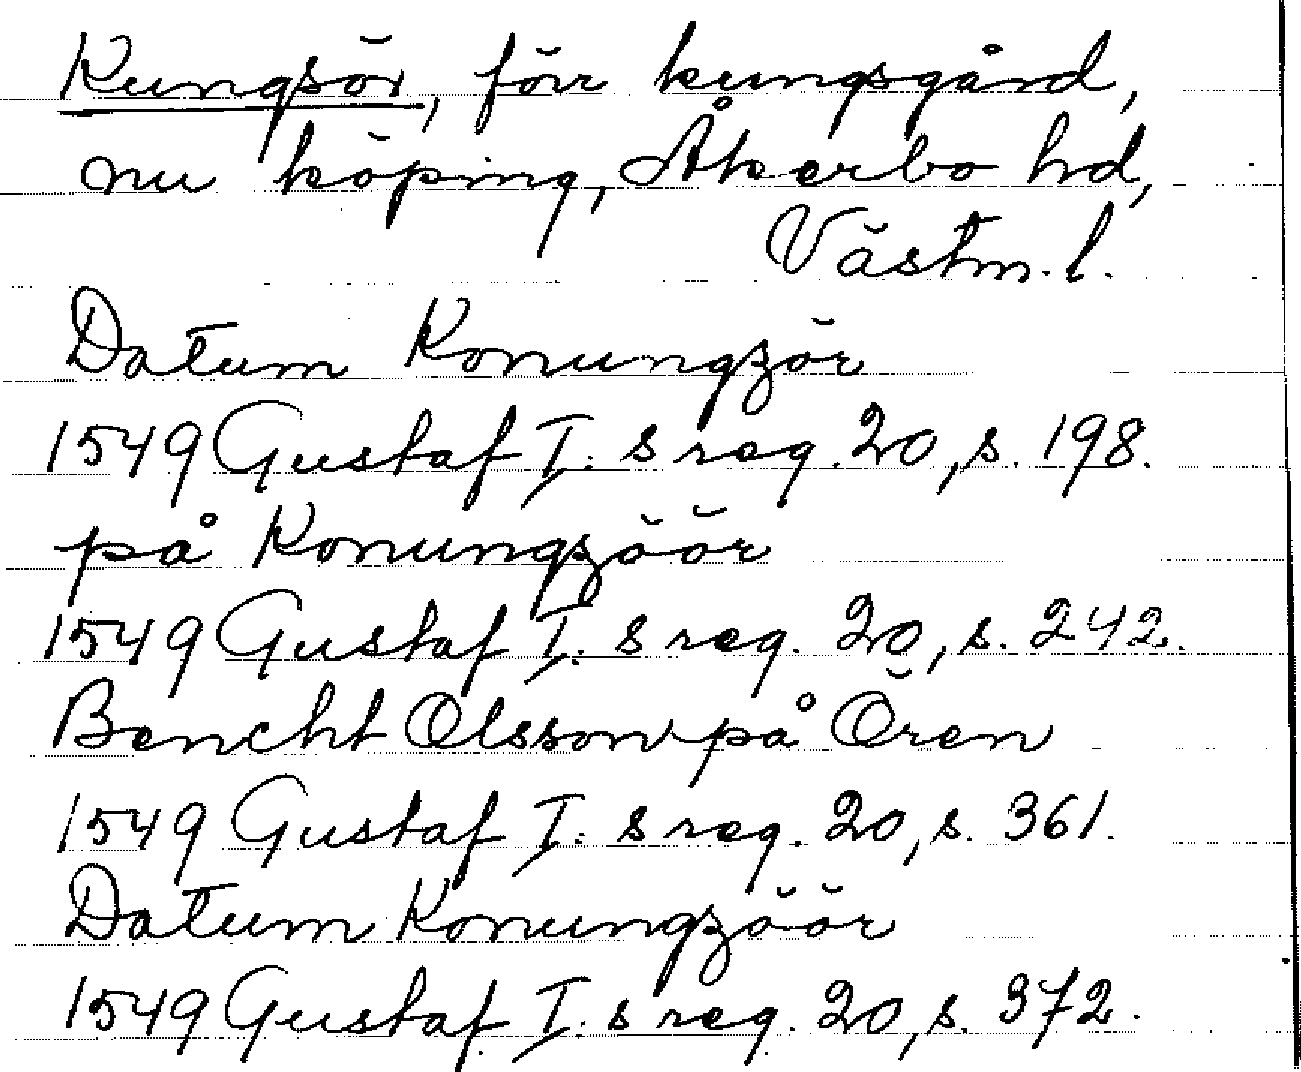 Kungsör, förr kungsgård,
nu köping, Åkerbo hd,
Västm. l.
Datum Konungzör
1549 Gustaf I:s reg. 20, s. 198.
på Konungzöör
1549 Gustaf I:s reg. 20, s. 242.
Bencht Olsson på Ören
1549 Gustaf I:s reg. 20, s. 361.
Datum Konungzöör
1549 Gustaf I:s reg. 20, s. 372.